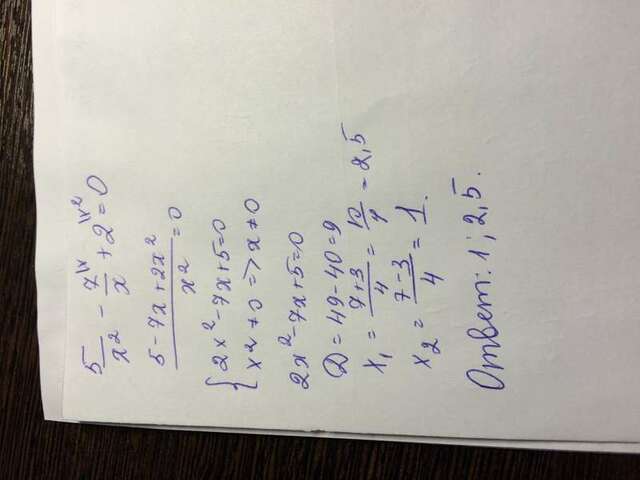 5/x² - 7\x/x + 2\x² = 0
5-7x+2x²/x² = 0
{ 2x²-7x+5=0
x²≠0 => x≠0
2x²-7x+5=0
D = 49-40=9
x₁ = 7+3/4 = 10/4 = 2,5
x₂ = 7-3/4 = 1.
Ответ: 1; 2,5.